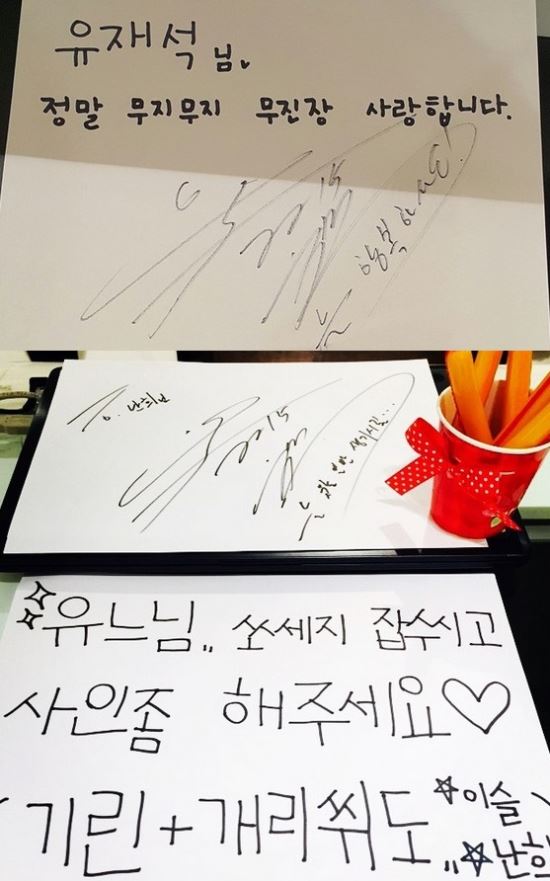 유재석님.
정말 무지무지 무진장 사랑합니다.
늘 행복하세요.
To. 난희님
유느님,, 쏘세지 잡쑤시고
사인좀 해주세요♡
(기린+개리쒸도,,
☆이슬
☆난희